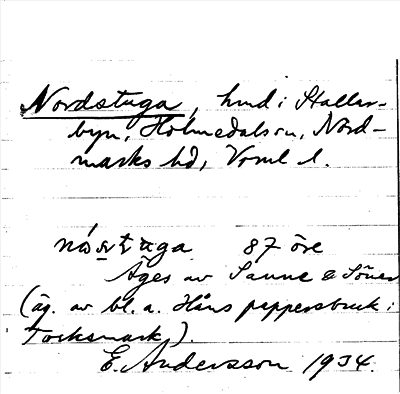 Nordstuga, hmd i Stallar-
byn, Holmedals sn, Nord-
marks hd, Vrml l.
nós̲t̲uga 87 öre
Äges av Sanne & Söner
(äg. av bl. a. Håns pappersbruk i
Tocksmark).
E. Andersson 1934.